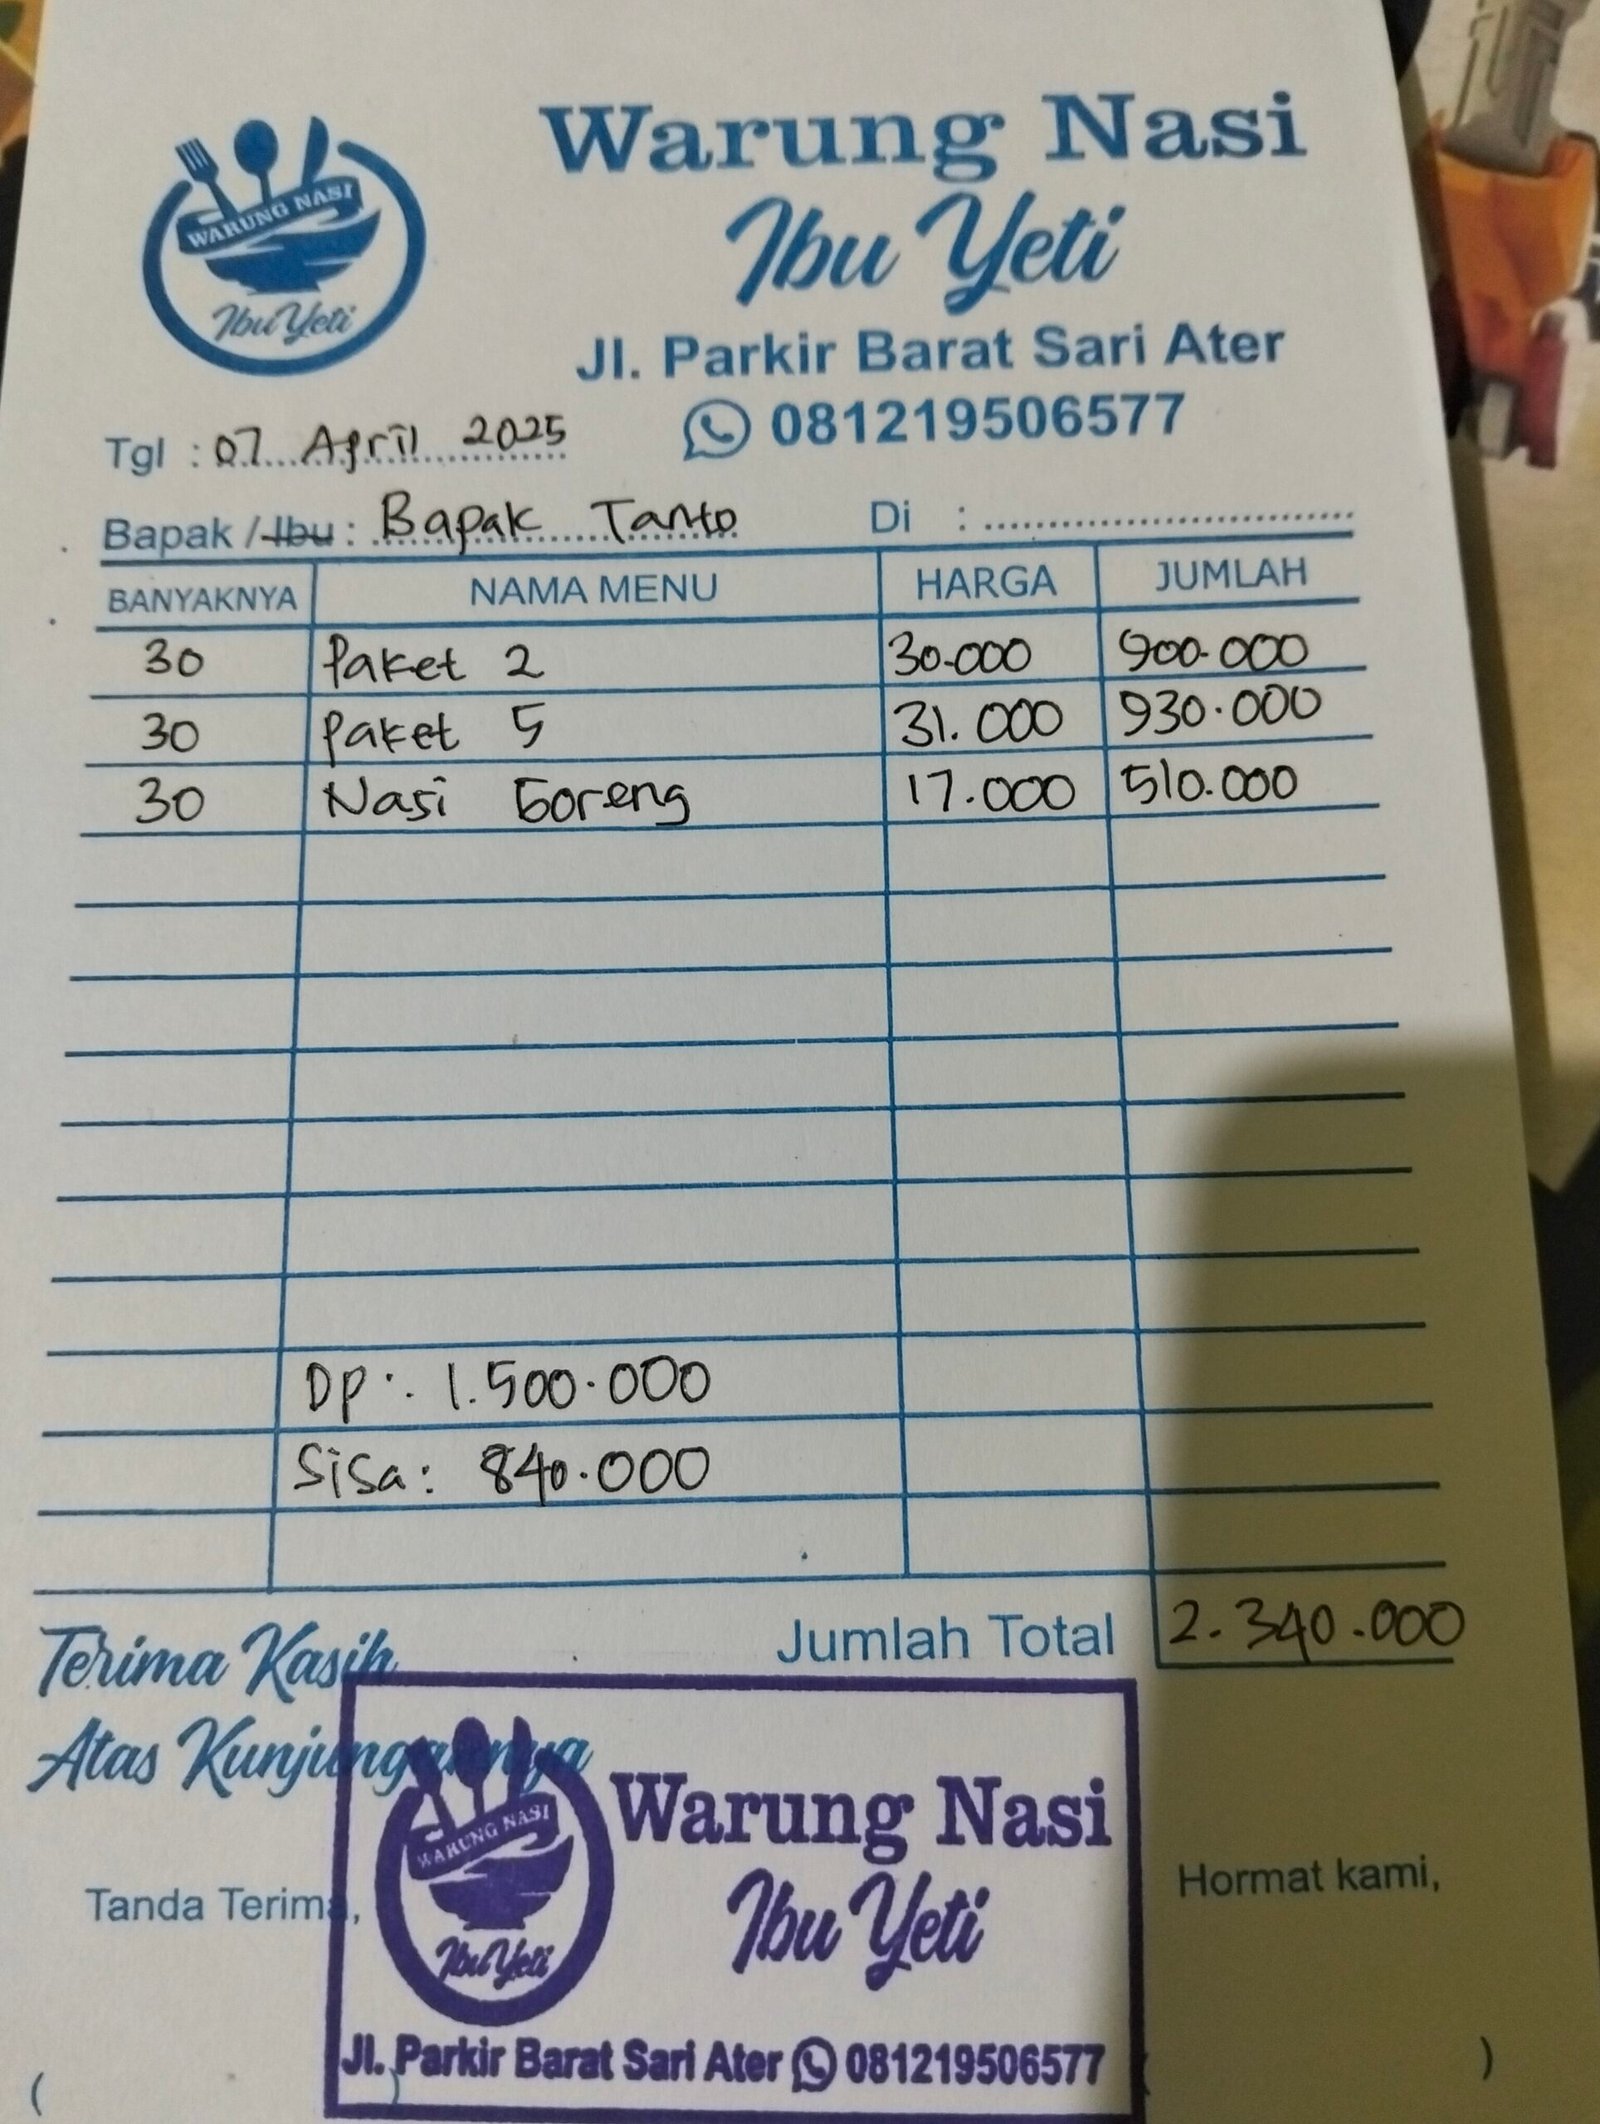 WARUNG NASI
Ibu Yeti
Warung Nasi
Ibu Yeti
Jl. Parkir Barat Sari Ater
081219506577
Tgl : 07 April 2025
Bapak / Ibu : Bapak Tanto Di :
BANYAKNYA NAMA MENU HARGA JUMLAH
30 Paket 2 30.000 900.000
30 Paket 5 31.000 930.000
30 Nasi Goreng 17.000 510.000
DP : 1.500.000
Sisa : 840.000
Jumlah Total 2.340.000
Terima Kasih
Atas Kunjungannya
Tanda Terima,
Hormat kami,
WARUNG NASI
Ibu Yeti
Warung Nasi
Ibu Yeti
Jl. Parkir Barat Sari Ater 081219506577
( ) ( )